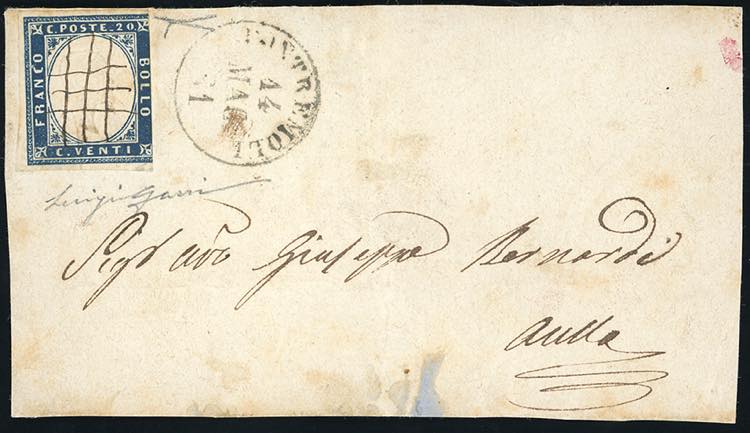 C. POSTE. 20.
FRANCO
BOLLO
C. VENTI
PONTREMOLI
14
MAG
61
Luigi Gazzi
Sigr avv Giuseppe Bernardi
Aulla